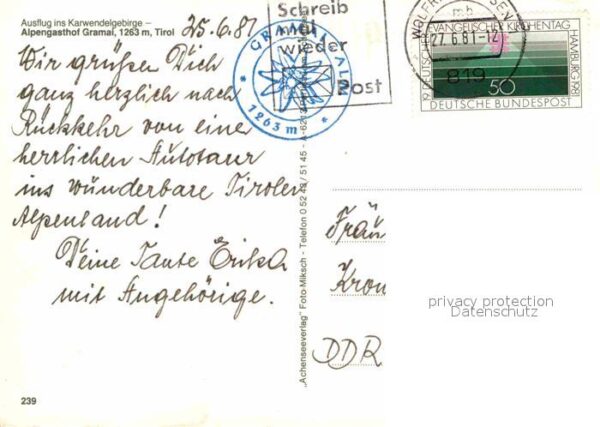 Ausflug ins Karwendelgebirge –
Alpengasthof Gramai, 1263 m, Tirol
25.6.81
Wir grüßen Dich
ganz herzlich nach
Rückkehr von einer
herrlichen Autotour
ins wunderbare Tiroler
Alpenland!
Deine Tante Erika
mit Angehörige.
239
Schreib
mal
wieder
Post
GRAMAI ALM
* 1263 m *
"Achenseeverlag" Foto Miksch - Telefon 0 52 43 / 51 45 - A-6213
27.6.81-12
mh
819
DEUTSCHER EVANGELISCHER KIRCHENTAG
HAMBURG 1981
50
DEUTSCHE BUNDESPOST
Frau
Kron
DDR
privacy protection
Datenschutz